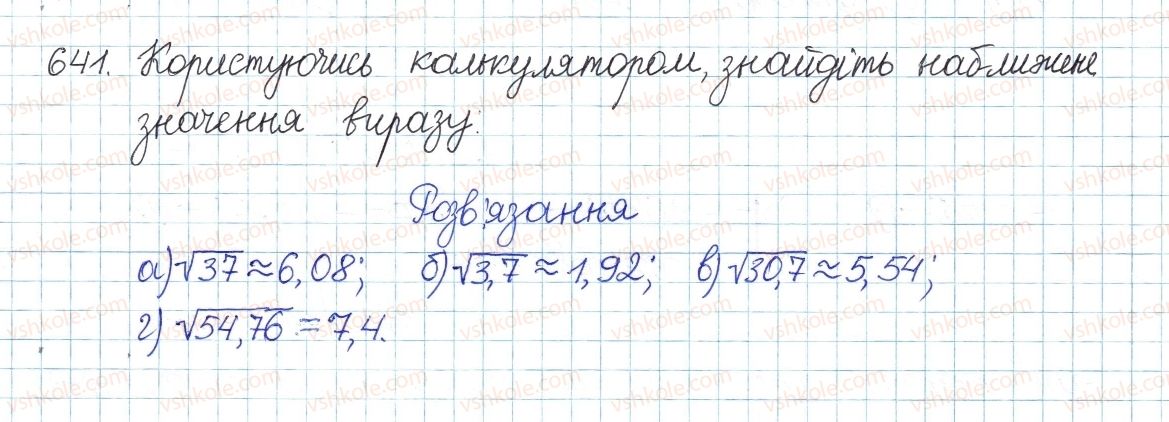 641. Користуючись калькулятором, знайдіть наближене
значення виразу:
Розв'язання
а) √37 ≈ 6,08; б) √3,7 ≈ 1,92; в) √30,7 ≈ 5,54;
г) √54,76 = 7,4.